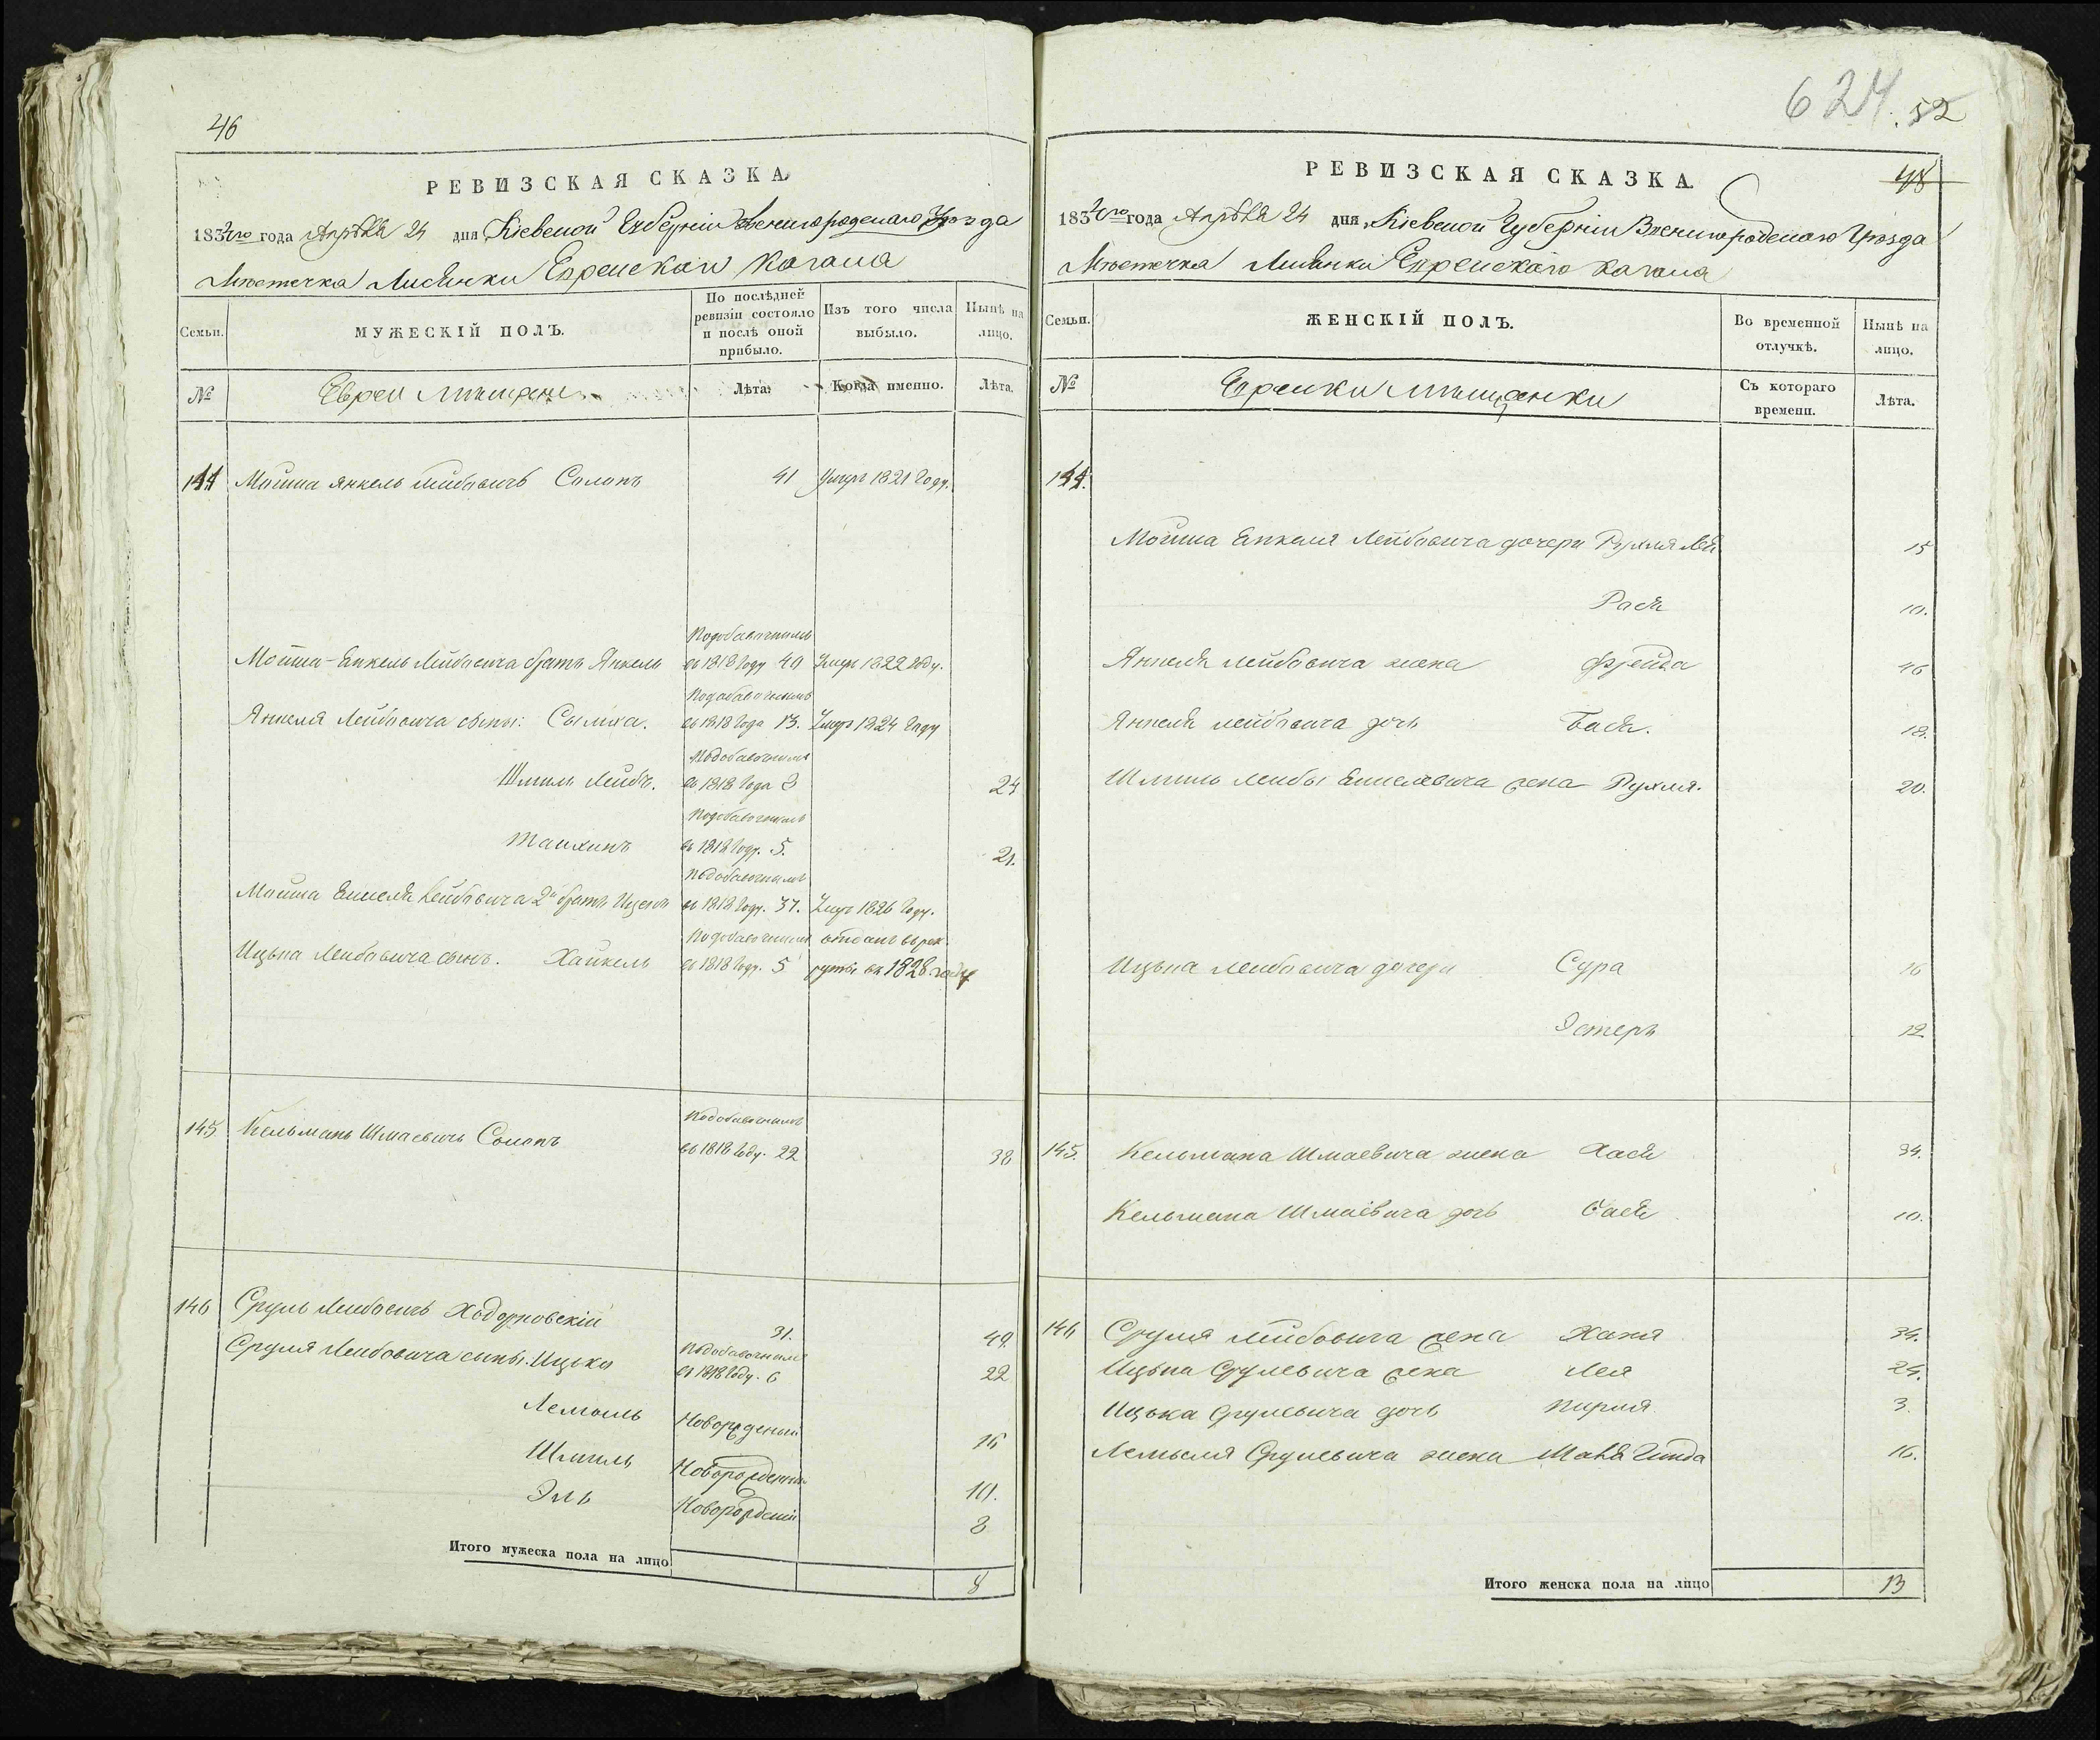 46
РЕВИЗСКАЯ СКАЗКА
1834го года Апрѣля 24 дня Кіевской Губерніи Звенигородскаго Уѣзда
Мѣстечка Лисянки Еврейскаго Кагала
Семьи.
МУЖЕСКІЙ ПОЛЪ.
По послѣдней ревизіи состояло и послѣ оной прибыло.
Изъ того числа выбыло.
Нынѣ на лицо.
№
Евреи Мѣщане
Лѣта.
Когда именно.
Лѣта.
144 Мошка Янкель Лейбовичъ Солопъ 41 Умръ 1821 Году.
Подобавочнымъ
Мошка-Енкель Лейбовича братъ Янкель въ 1818 Году 40 Умръ 1822 Году.
Подобавочнымъ
Янкеля Лейбовича сыны: Сымха. въ 1818 Года 13. Умръ 1824 Году
Подобавочнымъ
Шмиль Лейбъ. въ 1818 Года 8 24
Подобавочнымъ
въ 1818 Году. 5. 21.
Подобавочнымъ
Мошка Енкеля Лейбовича 2й братъ Ицко въ 1818 Году. 37. Умръ 1826 Году.
Подобавочнымъ отданъ въ рек-
Ицька Лейбовича сынъ. Хайкель въ 1818 Году. 5 руты въ 1828 году
Подобавочнымъ
145 Кельманъ Шмаевичъ Солопъ въ 1818 Году. 22 38
146 Сруль Лейбовичъ Ходорковскій 31. 49.
Подобавочнымъ
Сруля Лейбовича сыны. Ицько въ 1818 Году. 6 22
Лемыль Новорожденый 16
Шмиль Новорожденый 10.
Эль Новорожденый 8
Итого мужеска пола на лицо 8
624. 52
РЕВИЗСКАЯ СКАЗКА
48
1834го года Апрѣля 24 дня Кіевской Губерніи Звенигородскаго Уѣзда
Мѣстечка Лисянки Еврейскаго Кагала
Семьи.
ЖЕНСКІЙ ПОЛЪ.
Во временной отлучкѣ.
Нынѣ на лицо.
№
Еврейки Мѣщанки
Съ котораго времени.
Лѣта.
144.
Мошка Енкеля Лейбовича дочери Рухля Лея 15
Рася 10.
Янкеля Лейбовича жена Фрейда 46
Янкеля Лейбовича дочь Бася. 18.
Шмиль Лейбы Енкелевича жена Рухля. 20.
Ицька Лейбовича дочери Сура 16
Эстеръ 12
145. Кельмана Шмаевича жена Хася 34.
Кельмана Шмаевича дочь Бася 10.
146 Сруля Лейбовича жена Ханя 34.
Ицька Срулевича жена Лея 24.
Ицька Срулевича дочь Пирля 3.
Лемыля Срулевича жена Гинда 16.
Итого женска пола на лицо 13